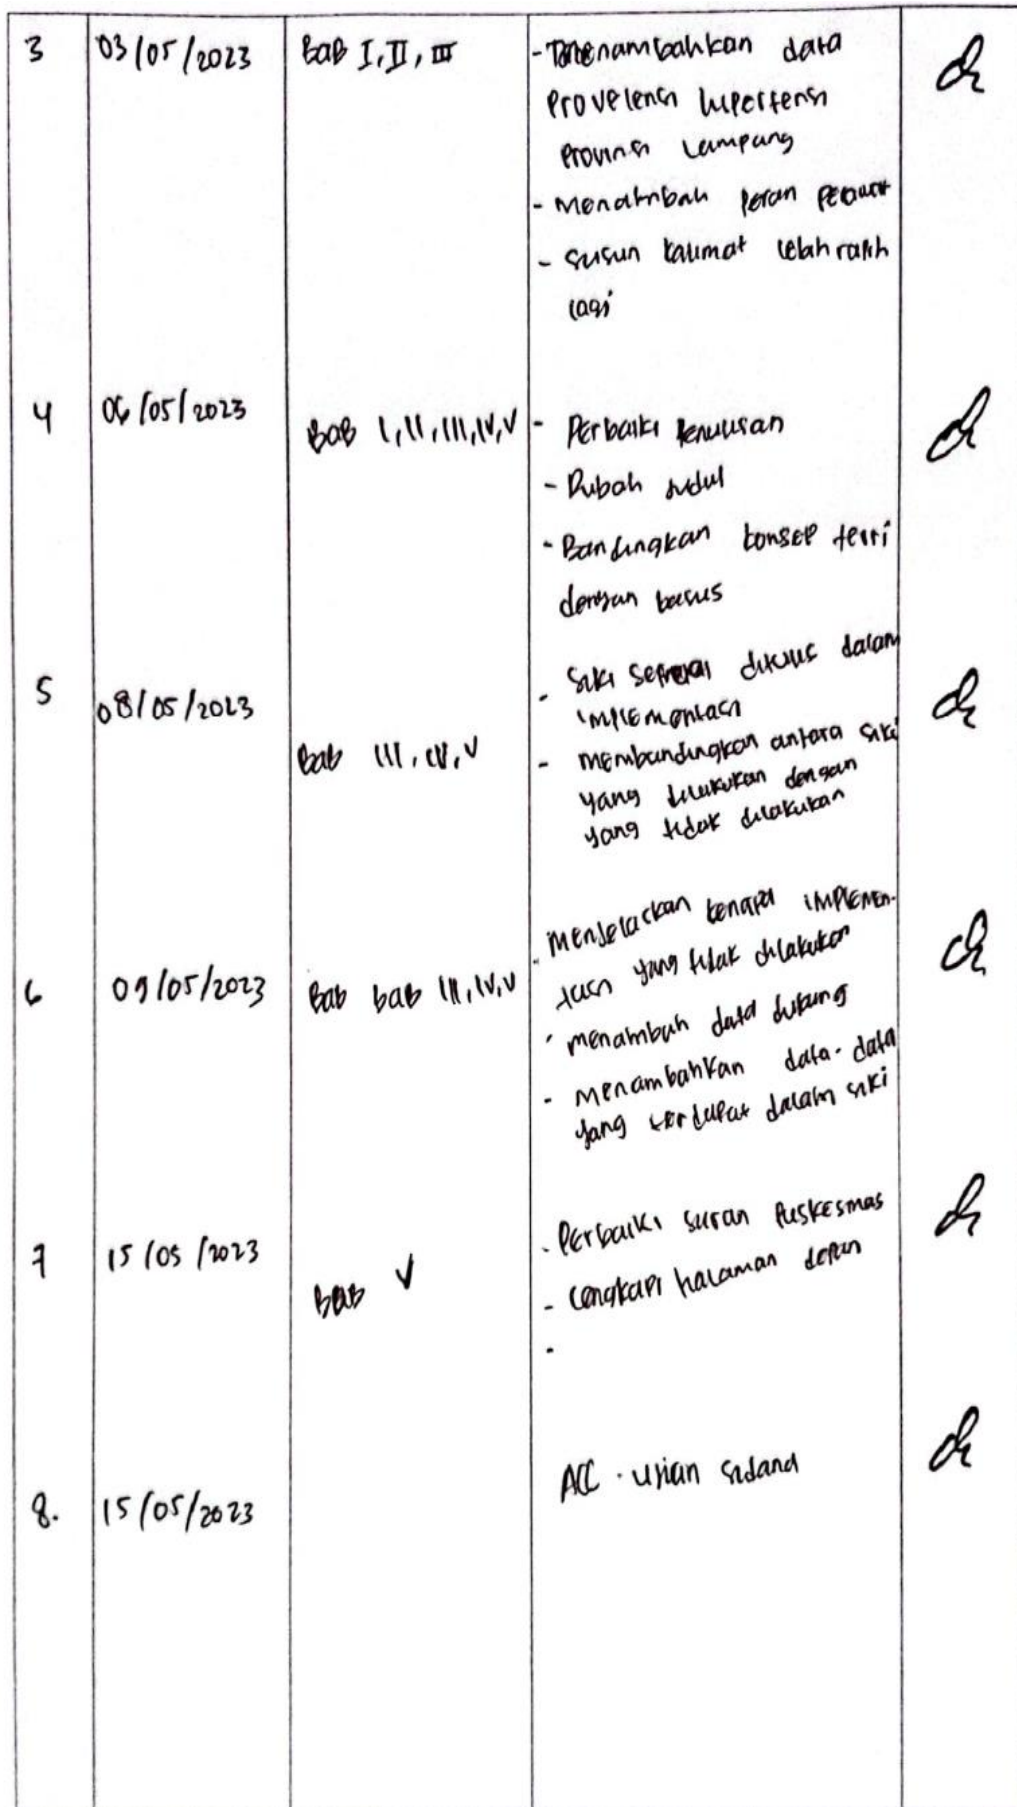 3 03/05/2023 Bab I, II, III - Menambahkan data
Provelensi hipertensi
Provinsi Lampung
- Menambah peran perawat
- Susun kalimat lebah rapih
lagi
4 06/05/2023 Bab I, II, III, IV, V - Perbaiki Penulisan
- Rubah judul
- Bandingkan konsep teori
dengan kasus
5 08/05/2023 Bab III, IV, V - Siki sesuai ditulis dalam
implementasi
- membandingkan antara siki
yang dilakukan dengan
yang tidak dilakukan
6 09/05/2023 Bab bab III, IV, V - Menjelaskan kenapa implemen-
tasi yang tidak dilakukan
- menambah data dukung
- menambahkan data-data
yang terdapat dalam siki
7 15/05/2023 Bab V - Perbaiki saran Puskesmas
- Lengkapi halaman depan
-
8. 15/05/2023 ACC . Ujian sidang